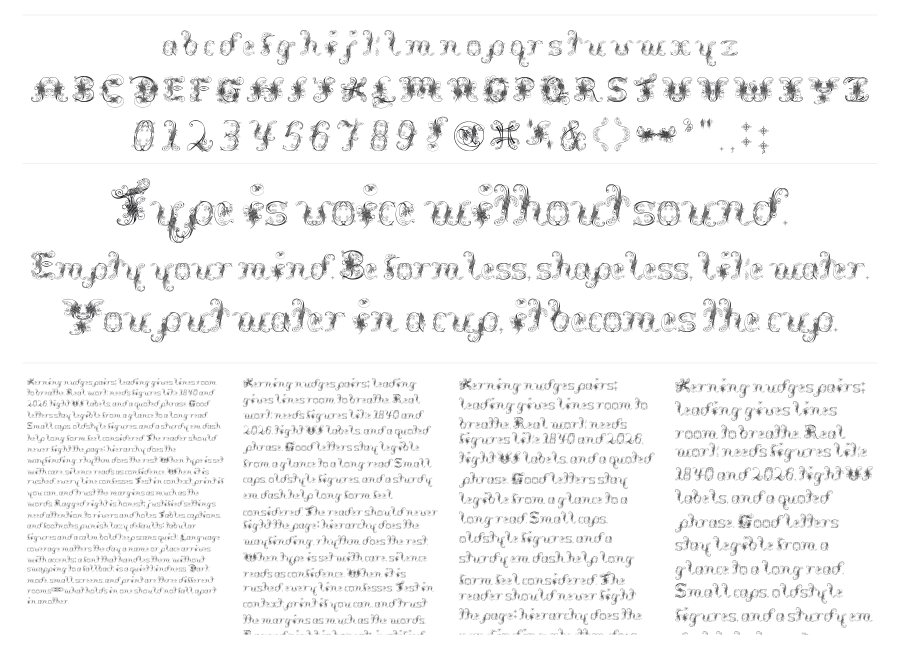 abcdefghijklmnopqrstuvwxyz
ABCDEFGHIJKLMNOPQRSTUVWXYZ
0123456789!@#%&()
Type is voice without sound.
Empty your mind. Be formless, shapeless, like water.
You put water in a cup, it becomes the cup.
Kerning nudges pairs; leading gives lines room
to breathe. Real work needs figures like 1840 and
2026, tight WF labels, and a quoted phrase. Good
letters stay legible from a glance to a long read. 
Small caps, oldstyle figures, and a sturdy em dash
help long form feel considered. The reader should
never fight the page; hierarchy does the
wayfinding, rhythm does the rest. When type is set
with care, silence reads as confidence. When it is
rushed, every line confesses. Test in context, print if
you can, and trust the margins as much as the
words. Ragged right is honest; justified settings
need attention to rivers and holes. Tables, captions,
and footnotes punish lazy defaults; tabular
figures and a calm bold keep scans quiet. Language
coverage matters the day a name or place arrives
with accents; a font that handles them without
swapping to fallback is a quiet kindness. Dark
mode, small screens, and print are three different
rooms—what holds in one should not fall apart
in another.
Kerning nudges pairs; leading
gives lines room to breathe. Real
work needs figures like 1840 and
2026, tight WF labels, and a quoted
phrase. Good letters stay legible
from a glance to a long read. Small
caps, oldstyle figures, and a sturdy
em dash help long form feel
considered. The reader should never
fight the page; hierarchy does the
wayfinding, rhythm does the rest.
When type is set with care, silence
reads as confidence. When it is
rushed, every line confesses. Test in
context, print if you can, and trust
the margins as much as the words.
Kerning nudges pairs;
leading gives lines room to
breathe. Real work needs
figures like 1840 and 2026,
tight WF labels, and a quoted
phrase. Good letters stay
legible from a glance to a
long read. Small caps,
oldstyle figures, and a
sturdy em dash help long
form feel considered. The
reader should never fight
the page; hierarchy does the
Kerning nudges pairs;
leading gives lines
room to breathe. Real
work needs figures like
1840 and 2026, tight WF
labels, and a quoted
phrase. Good letters
stay legible from a
glance to a long read.
Small caps, oldstyle
figures, and a sturdy em